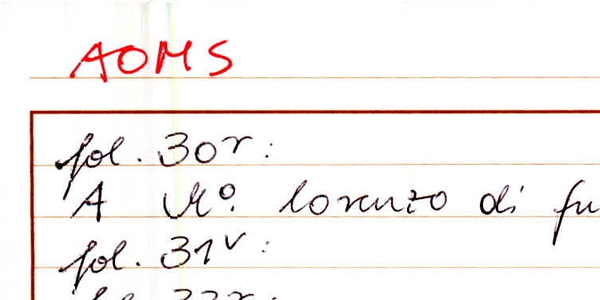 AOMS
fol. 30r:
A Mº. lorenzo di fu
fol. 31v: